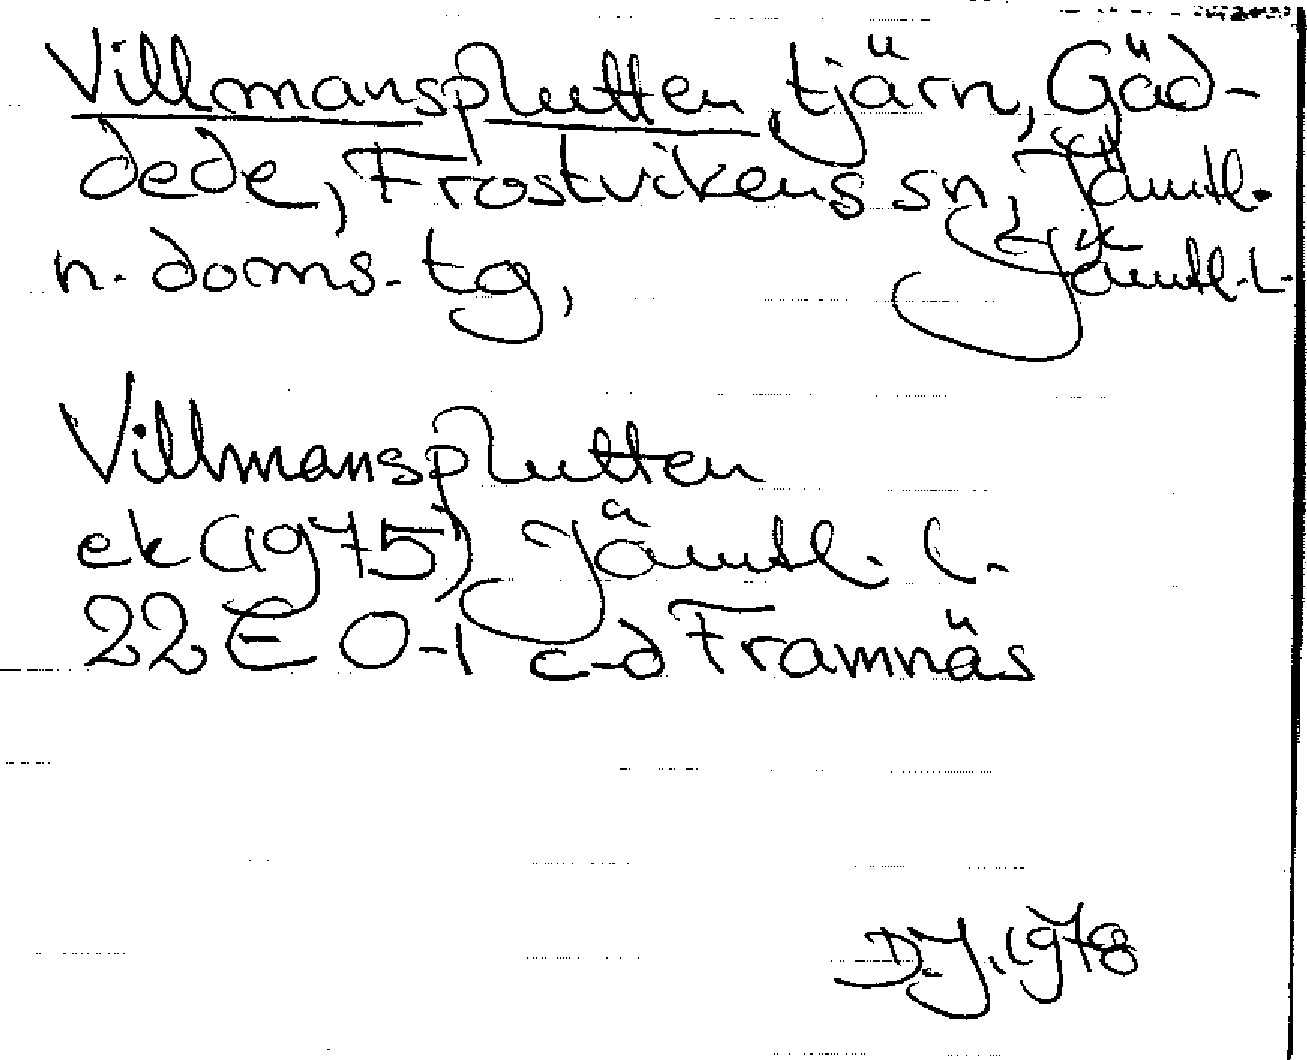 Villmansplutten, tjärn, Gäd-
dede, Frostvikens sn, Jämtl.
n. doms. tg, Jämtl. l.
Villmansplutten
ek (1975) Jämtl. l.
22E 0-1 c-d Framnäs
D.J. 1978